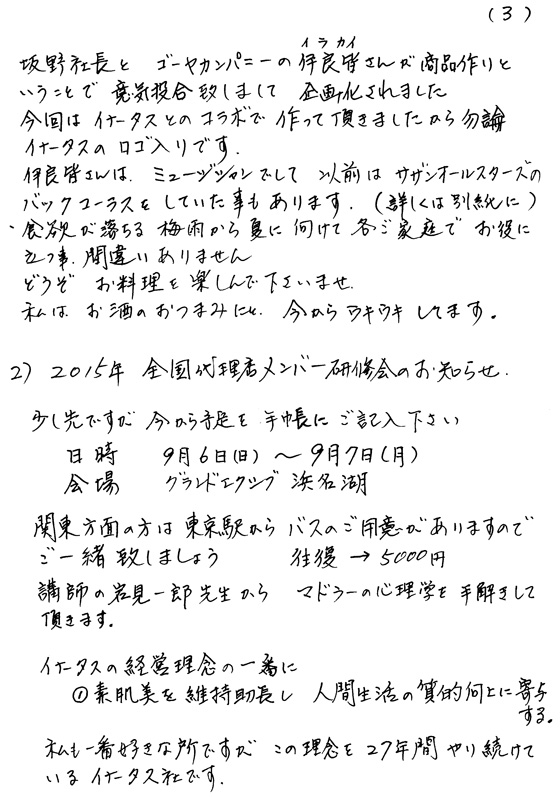 (3)
坂野社長と ゴーヤカンパニーの伊良皆さんが商品作りと
イラカイ
いうことで 意気投合致しまして 企画化されました
今回は イナータスとのコラボで 作って頂きましたから勿論
イナータスのロゴ入りです.
伊良皆さんは. ミュージシャンでして 以前は サザンオールスターズの
バックコーラスをしていた事もあります. (詳しくは別紙に)
食欲が落ちる 梅雨から夏に向けて 各ご家庭で お役に
立つ事. 間違いありません
どうぞ お料理を楽しんで下さいませ.
私は お酒のおつまみにと. 今から ウキウキ してます。
2) 2015年 全国代理店メンバー研修会のお知らせ.
少し先ですが 今から予定を 手帳に ご記入下さい
日時 9月6日(日) 〜 9月7日(月)
会場 グランドエクシブ 浜名湖
関東方面の方は 東京駅から バスのご用意がありますので
ご一緒致しましょう 往復 → 5000円
講師の岩見一郎先生から マドラーの心理学を手解きして
頂きます.
イナータスの経営理念の一番に
①素肌美を維持助長し 人間生活の質的向上に寄与
する。
私も一番好きな所ですが この理念を27年間 やり続けて
いる イナータス社です.